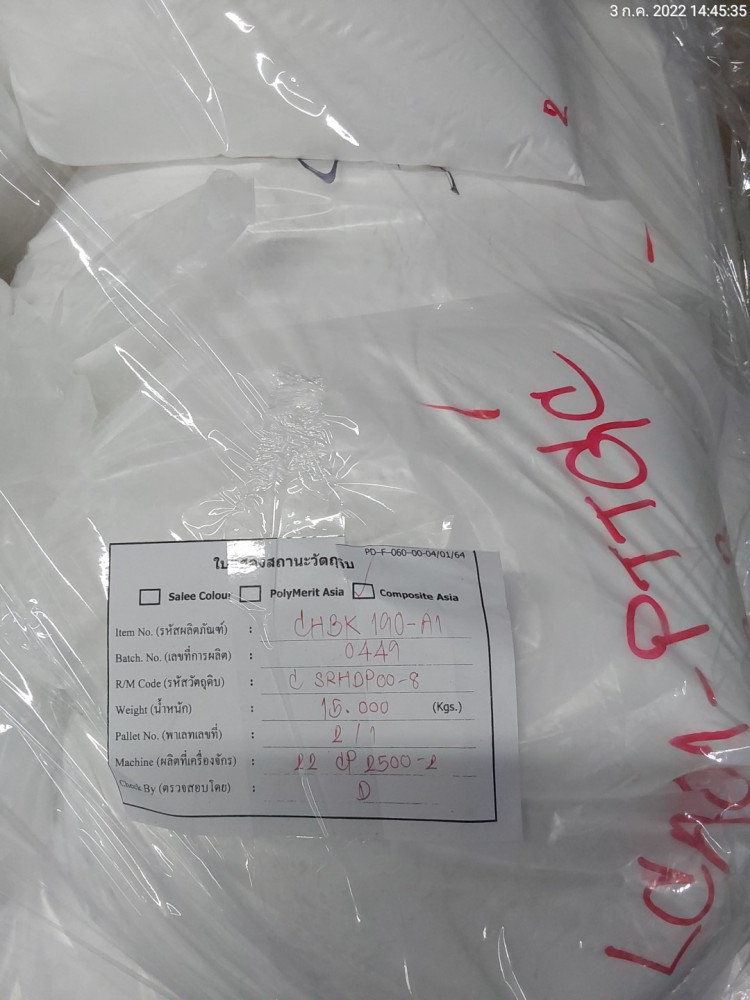 3 ก.ค. 2022 14:45:35
2
PD-F-060-00-04/01/64
Salee Colour PolyMerit Asia Composite Asia
Item No. (รหัสผลิตภัณฑ์) : CHBK 190-A1
Batch. No. (เลขที่การผลิต) : 0449
R/M Code (รหัสวัตถุดิบ) : C SRHDP00-8
Weight (น้ำหนัก) : 15.000 (Kgs.)
Pallet No. (พาเลทเลขที่) : 2/1
Machine (ผลิตที่เครื่องจักร) : 22 CP 2500-2
Check By (ตรวจสอบโดย) : D